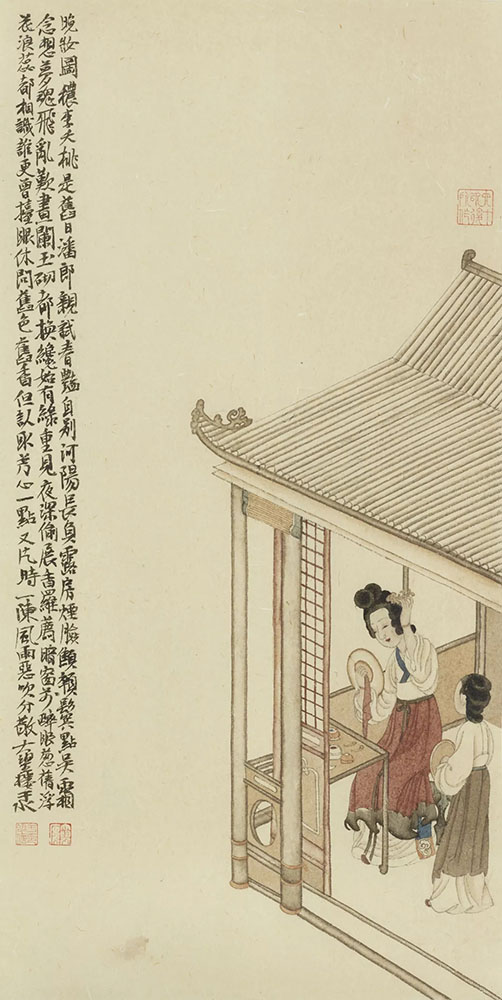 晚妝圖穠李夭桃是舊日潘郎親試春豔自别河陽長負露房煙臉顦顇鬢點吴霜
念想夢魂飛亂歎畫闌玉砌都換纔始有緣重見夜深偷展香羅薦暗窗前醉眼葱蒨浮
花浪蕊都相識誰更曾擡眼休問舊色舊香但認取芳心一點又片時一陳風雨惡吹分散